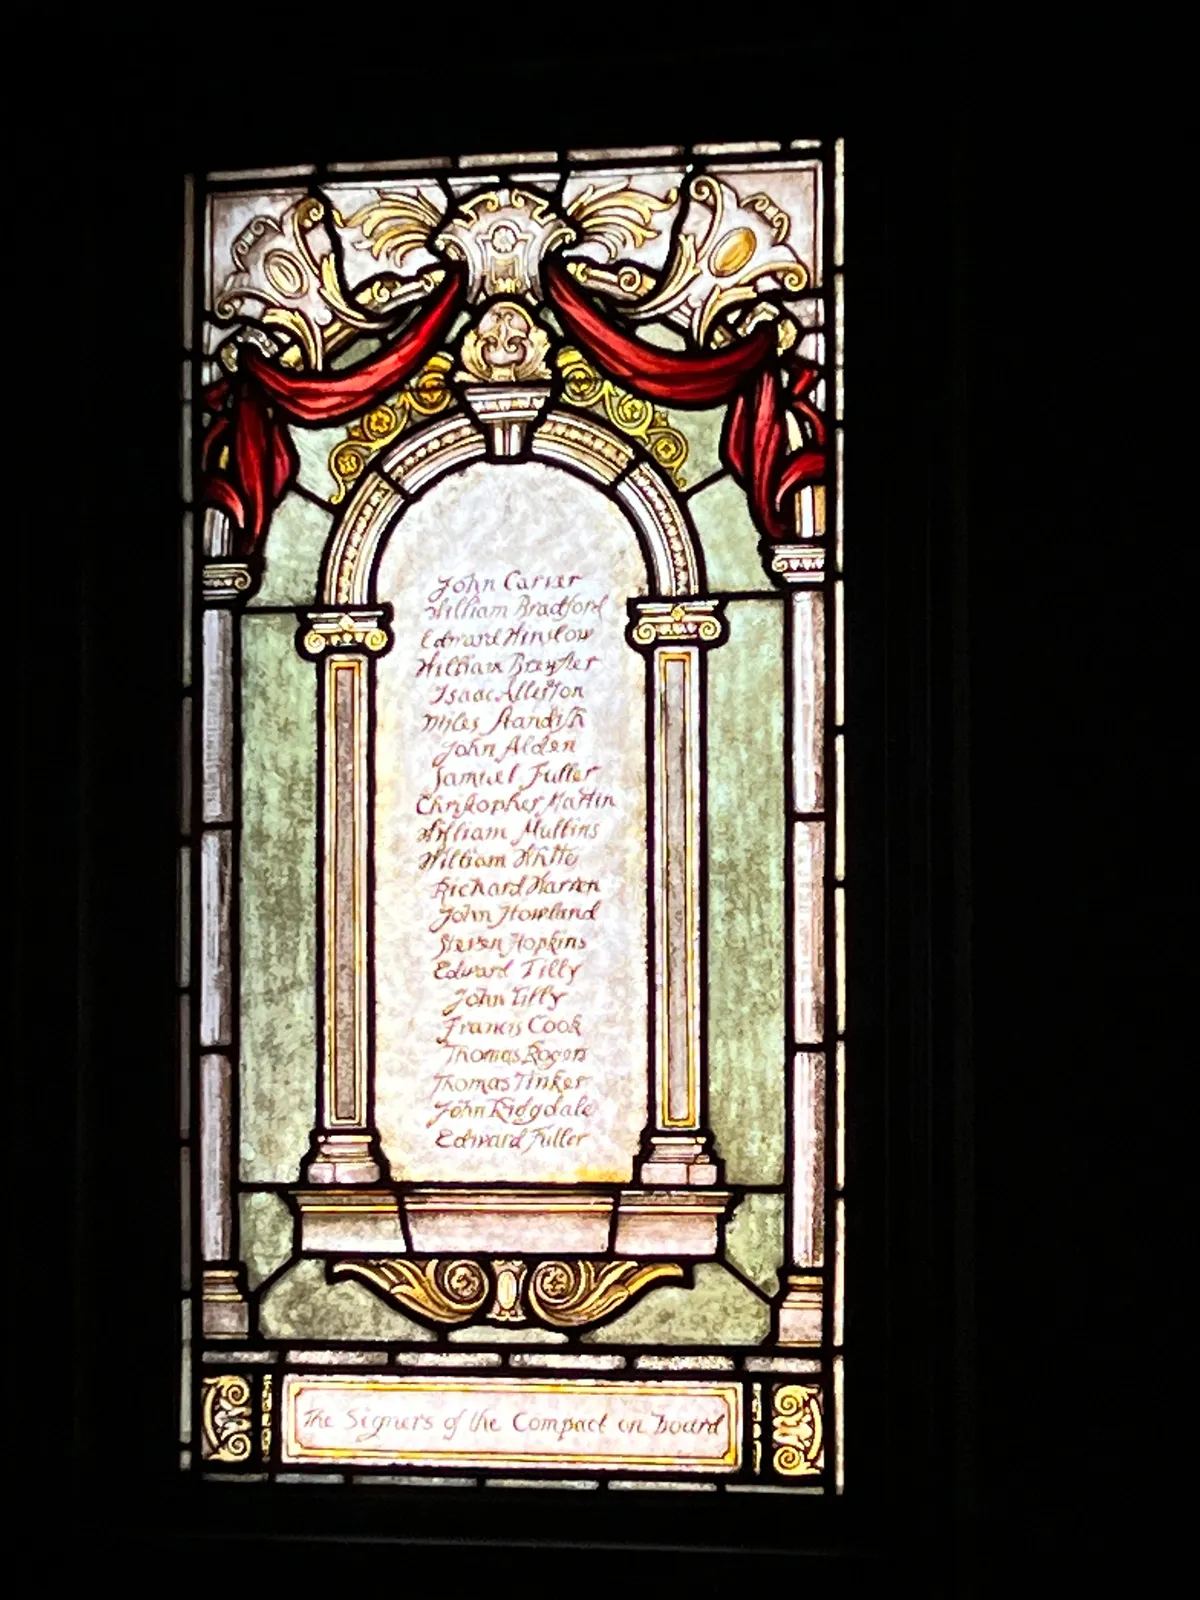 John Carver
William Bradford
Edward Winslow
William Brewster
Isaac Allerton
Myles Standish
John Alden
Samuel Fuller
Christopher Martin
William Mullins
William White
Richard Warren
John Howland
Steven Hopkins
Edward Tilly
John Tilly
Francis Cook
Thomas Rogers
Thomas Tinker
John Ridgdale
Edward Fuller
The Signers of the Compact on board